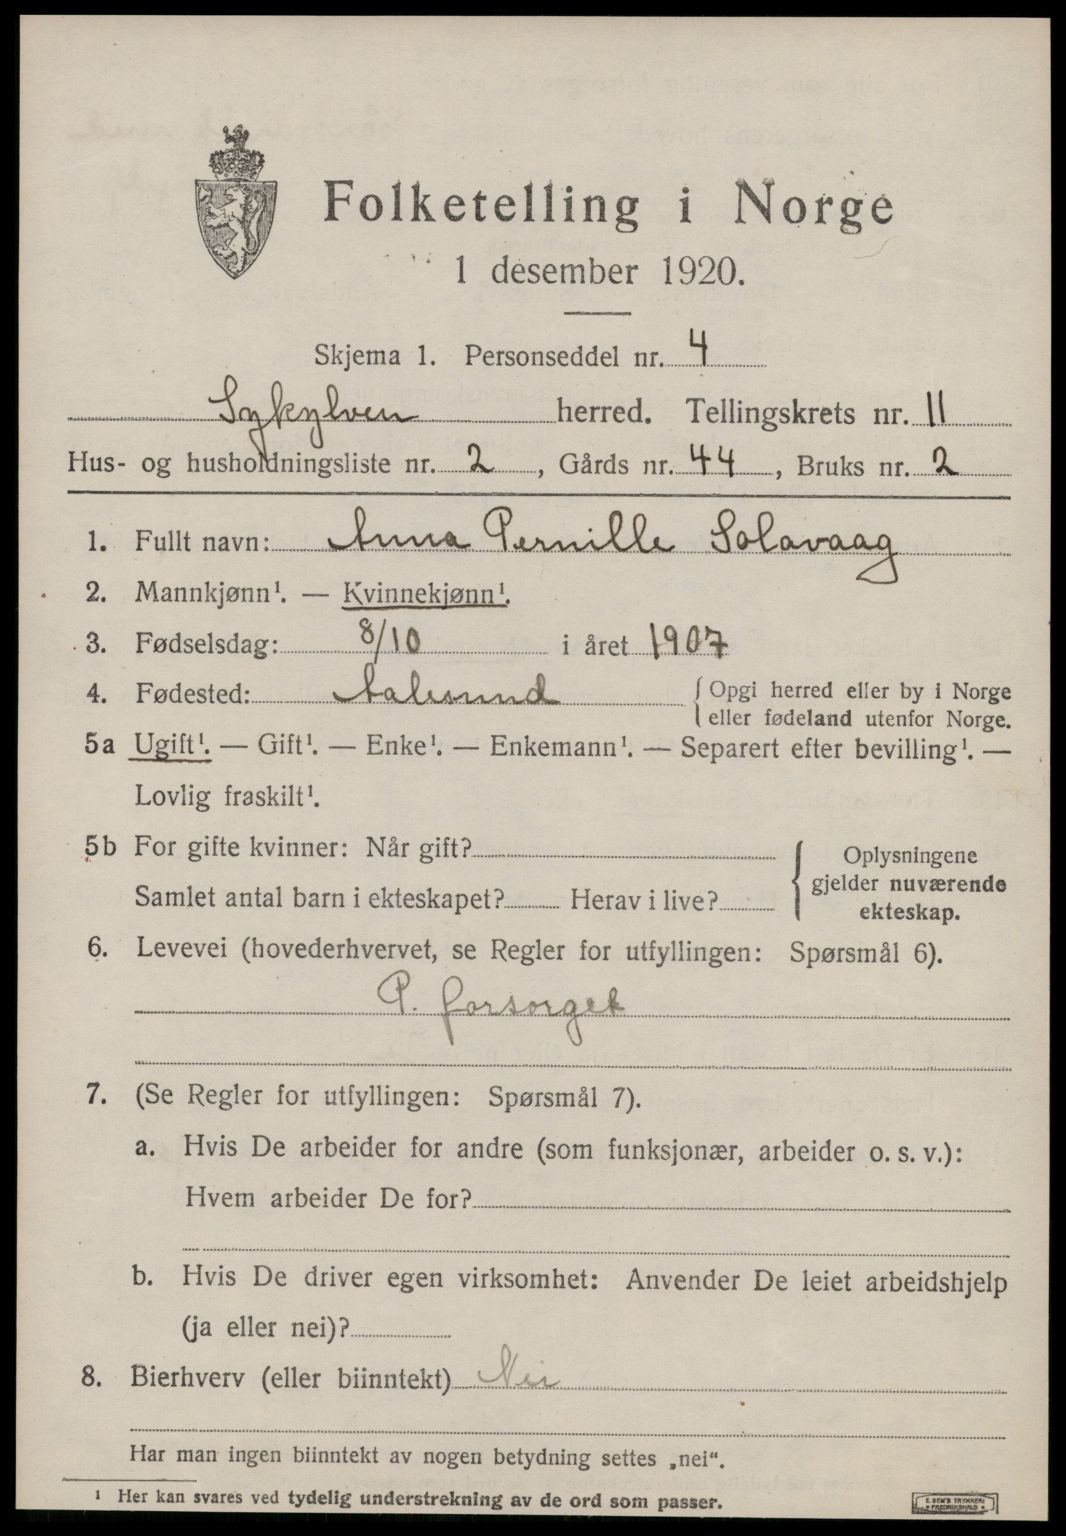 Folketelling i Norge
1 desember 1920.
Skjema 1. Personseddel nr. 4
Sykylven herred. Tellingskrets nr. 11
Hus- og husholdningsliste nr. 2, Gårds nr. 44, Bruks nr. 2
1. Fullt navn: Anna Pernille Solavaag
2. Mannkjønn¹. — Kvinnekjønn¹.
3. Fødselsdag: 8/10 i året 1907
4. Fødested: Aalesund { Opgi herred eller by i Norge
eller fødeland utenfor Norge.
5a Ugift¹. — Gift¹. — Enke¹. — Enkemann¹. — Separert efter bevilling¹. —
Lovlig fraskilt¹.
5b For gifte kvinner: Når gift?
Samlet antal barn i ekteskapet? Herav i live?
{ Oplysningene
gjelder nuværende
ekteskap.
6. Levevei (hovederhvervet, se Regler for utfyllingen: Spørsmål 6).
P. forsorget
7. (Se Regler for utfyllingen: Spørsmål 7).
a. Hvis De arbeider for andre (som funksjonær, arbeider o. s. v.):
Hvem arbeider De for?
b. Hvis De driver egen virksomhet: Anvender De leiet arbeidshjelp
(ja eller nei)?
8. Bierhverv (eller biinntekt) Nei
Har man ingen biinntekt av nogen betydning settes „nei“.
¹ Her kan svares ved tydelig understrekning av de ord som passer.
E. SEM'S TRYKKERI
FREDRIKSHALD